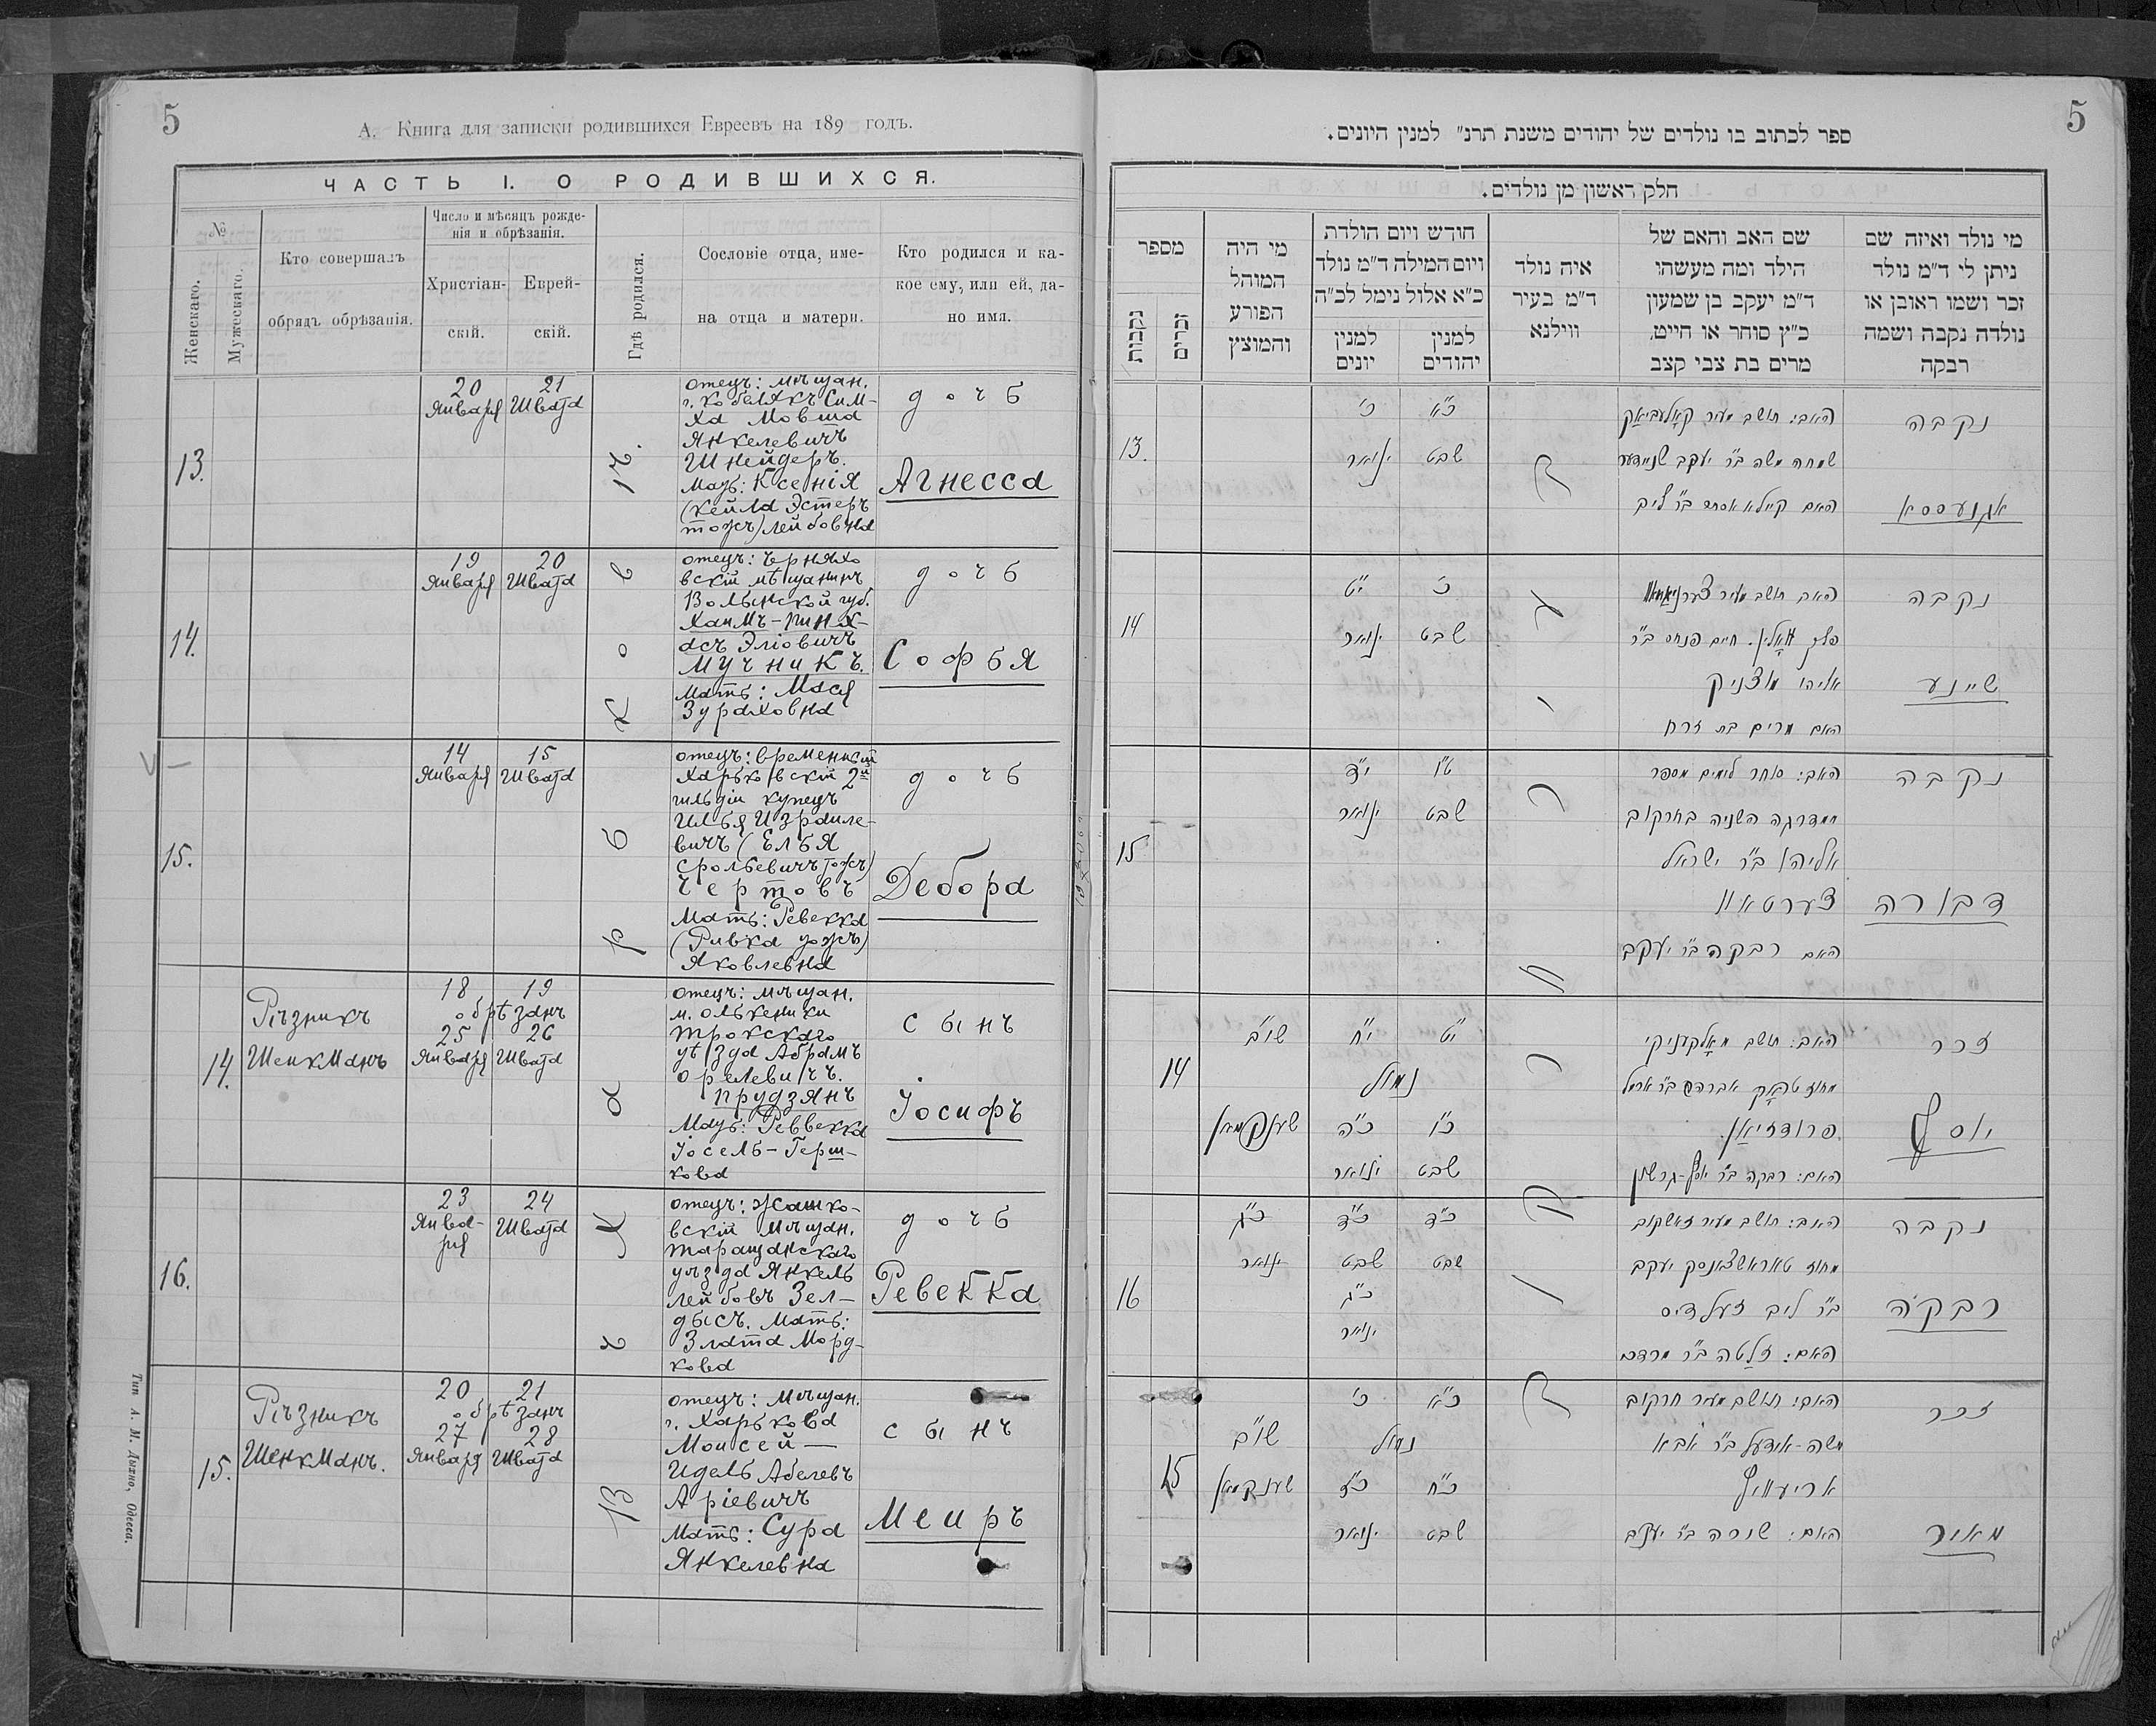 5
А. Книга для записки родившихся Евреевъ на 189 годъ.
ЧАСТЬ I. О РОДИВШИХСЯ.
№
Женскаго.
Мужескаго.
Кто совершалъ
обрядъ обрѣзанія.
Число и мѣсяцъ рожде-
нія и обрѣзанія.
Христіан-
скій.
Еврей-
скій.
Гдѣ родился.
Сословіе отца, име-
на отца и матери.
Кто родился и ка-
кое ему, или ей, да-
но имя.
13.
20
Января
21
Швата
отецъ: мѣщан.
г. Кобелякъ Сим-
ха Мовша
Янкелевичъ
Шнейдеръ.
Мать: Ксенія
(Кейла Эстеръ
тожъ) Лейбовна
дочь
Агнесса
14.
19
Января
20
Швата
отецъ: Черняхо
вскій мѣщанинъ
Волынской губ.
Хаимъ-Пинх-
асъ Эліовичъ
Мучникъ.
Мать: Мася
Зурахов­на
дочь
Софья
15.
14
Января
15
Швата
отецъ: временный
Харьковскій 2й
гильдіи купецъ
Илья Израиле-
вичъ (Елья
Срольевичъ тожъ)
Чертовъ
Мать: Ревекка
(Ривка тожъ)
Яковлевна
дочь
Дебора
14.
Рѣзникъ
Шенкманъ
18
19
обрѣзанъ
25
26
Января
Швата
отецъ: мѣщан.
м. Олькеники
Трокскаго
уѣзда Абрамъ
Орелевичъ.
Прудзянъ
Мать: Реввекка
Іосель-Герш-
кова
сынъ
Іосифъ
16.
23
Янва-
ря
24
Швата
отецъ: Жашко-
вскій мѣщан.
Таращанскаго
уѣзда Янкель
Лейбовъ Зел-
дысъ. Мать:
Злата Морд-
кова
дочь
Ревекка
15.
Рѣзникъ
Шенкманъ.
20
21
обрѣзанъ
27
28
Января
Швата
отецъ: Мѣщан.
г. Харькова
Моисей-
Идель Абелевъ
Аріевичъ
Мать: Сура
Янкелевна
сынъ
Меиръ
Въ г. Харьковѣ
Тип А. М. Дыхно, Одесса.
5
ספר לכתוב בו נולדים של יהודים משנת תרנ״ למנין היונים.
חלק ראשון מן נולדים.
מי נולד ואיזה שם
ניתן לי ד״מ נולד
זכר ושמו ראובן או
נולדה נקבה ושמה
רבקה
שם האב והאם של
הילד ומה מעשהו
ד״מ יעקב בן שמעון
כ״ץ סוחר או חייט,
מרים בת צבי קצב
איה נולד
ד״מ בעיר
ווילנא
חודש ויום הולדת
ויום המילה ד״מ נולד
כ״א אלול נימל לכ״ה
למנין
יהודים
למנין
יונים
מי היה
המוהל
הפורע
והמוצץ
מספר
זכרים
נקבות
נקבה
אגנעססא
האב: תושב מעיר קאָלעביאַק
שמחה משה ב״ר יעקב שניידער
האם קיילא אסתר ב״ר ליב
כ״א
שבט
כ׳
ינואר
13.
נקבה
שיינע
פלך וואָלין. חיים פנחס ב״ר
אליהו מוצניק
האם מרים בת זרח
כ׳
שבט
י״ט
ינואר
14
נקבה
דבורה
האב: סוחר לימים מספר
ממדרגה השניה בחרקוב
אליהו ב״ר ישראל
צערטאוו
האם רבקה ב״ר יעקב
ט״ו
שבט
י״ד
ינואר
15
זכר
יוסף
האב: תושב מאָלקעניקי
מחוז טראָק אברהם ב״ר
פרודזיאַן.
האם: רבקה ב״ר יוסף-גרשון
י״ט
י״ח
נמול
כ״ו
כ״ה
שבט
ינואר
שו״ב
שענקמאן
14
נקבה
רבקה
האב: תושב מעיר זאשקוב
מחוז טאראשצאנסק יעקב
ב״ר ליב זעלדיס
האם: זלַטה ב״ר מרדכי
כ״ד
שבט
כ״ד
שבט
כ״ג
ינואר
כ״ג
ינואר
16
זכר
מאיר
האב: תושב מעיר חרקוב
משה-אידעל ב״ר אבא
אריעוויץ
האם: שרה ב״ר יעקב
כ״א
כ׳
נמול
כ״ח
כ״ז
שבט
ינואר
שו״ב
שענקמאן
15